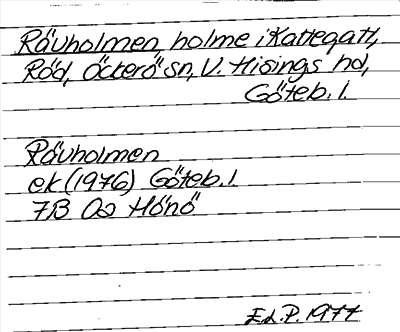 Råvholmen, holme i Kattegatt,
Röd, Öckerö sn, V. Hisings hd,
Göteb. l.
Råvholmen
ek (1976) Göteb. l.
7B Oa Hönö
E.L.P. 1977